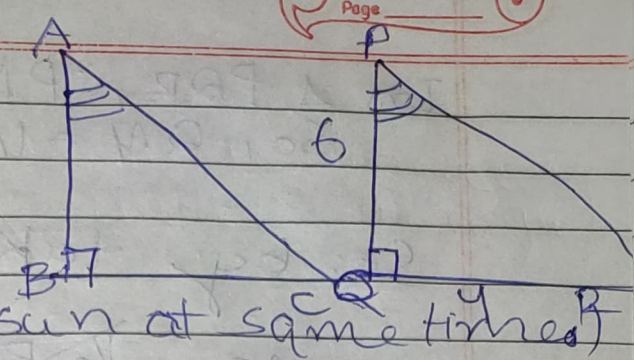 Page
A P
6
B C Q y R
sun at same time)